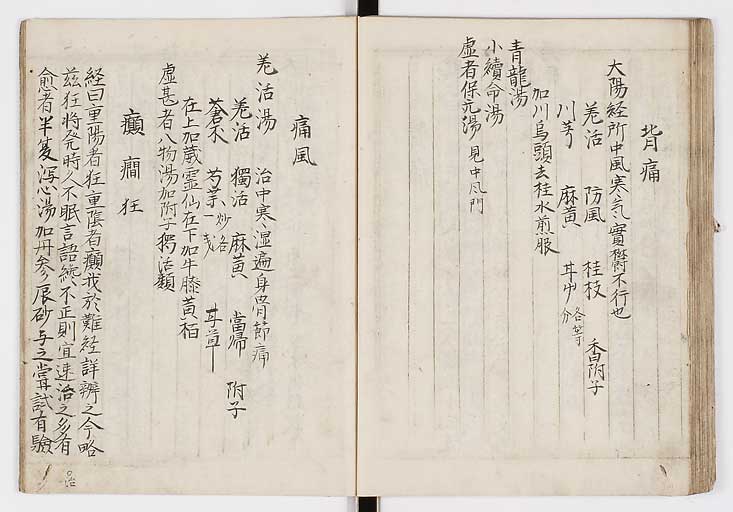 背痛
大陽経所中風寒気實欝不行也
羗活 防風 桂枝 香附子
川芎 麻黄 甘艸 各等分
加川烏頭去桂水煎服
青龍湯
小續命湯
虚者保元湯 見中风門
痛風
羗活湯 治中寒湿遍身骨節痛
羗活 獨活 麻黄 當帰 附子
蒼朮 芍薬 甘草
在上加葳霊仙在下加牛膝黄栢
虚甚者八物湯加附子獨活類
癲癇狂
経曰重陽者狂重陰者癲我於難経詳辨之今略
茲狂将発時久不眠言語續不正則宜速治之多有
愈者半夏瀉心湯加丹参辰砂与之嘗試有驗